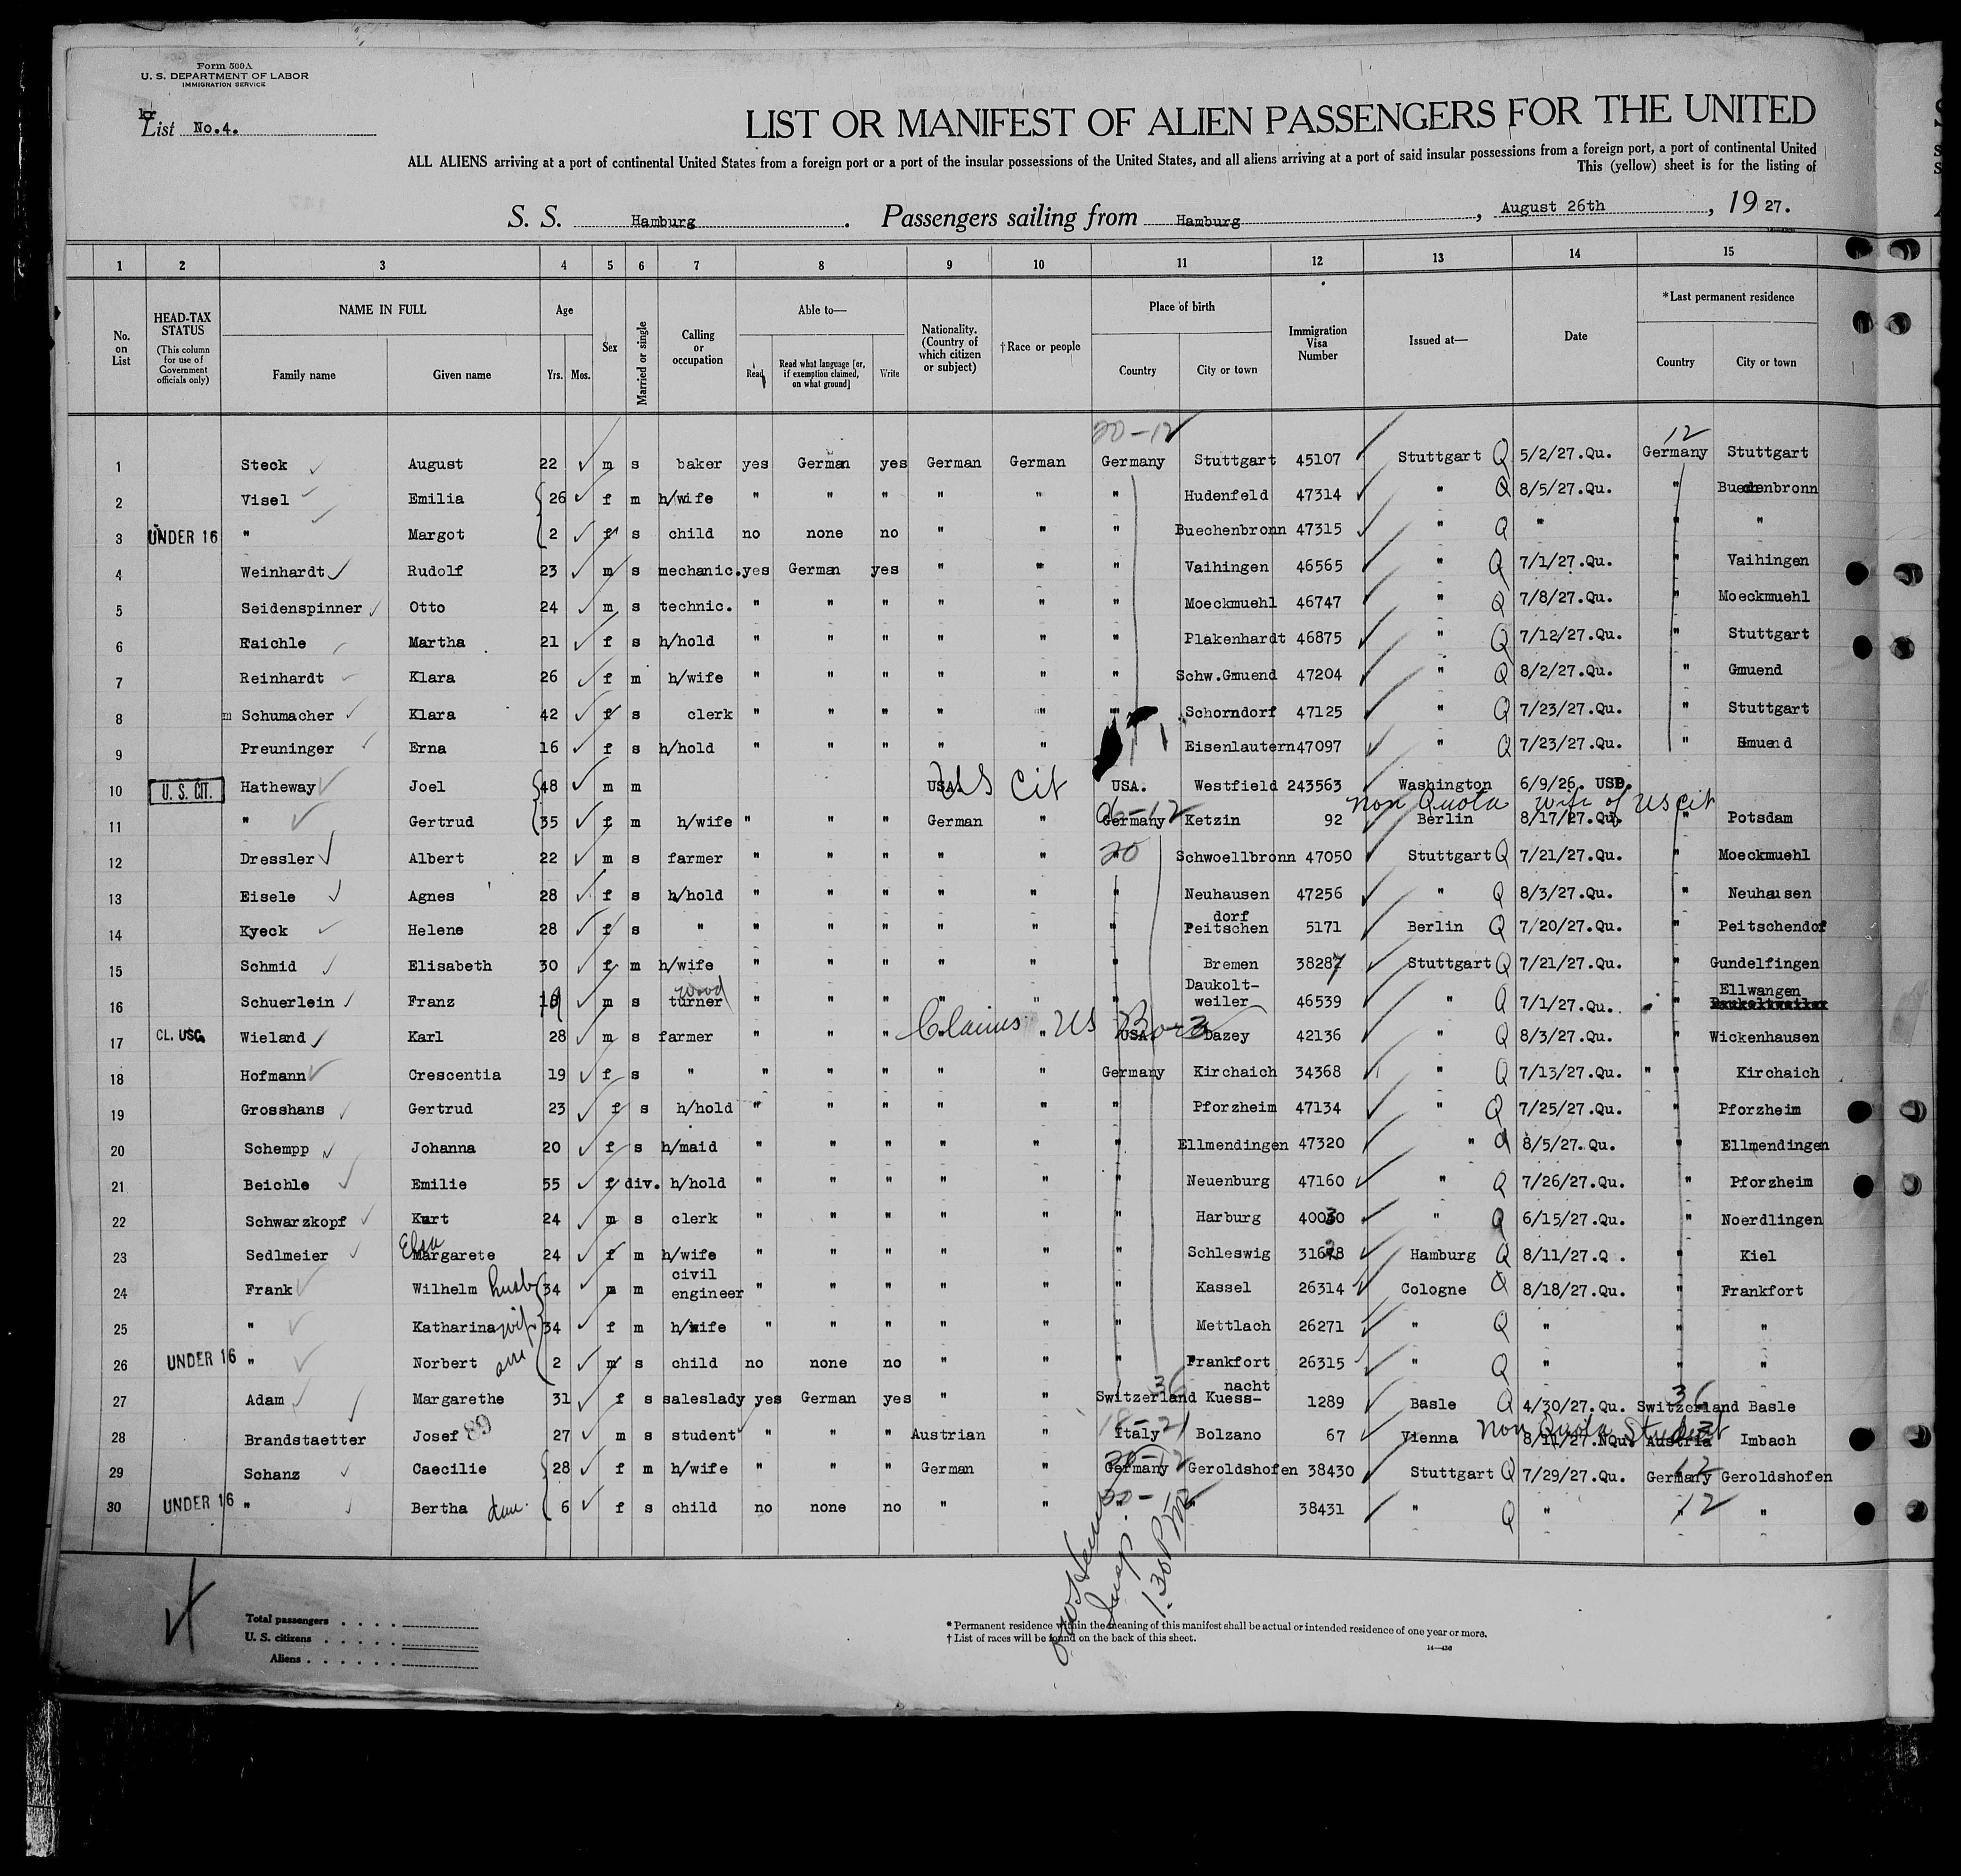 Form 500A
U. S. DEPARTMENT OF LABOR
IMMIGRATION SERVICE
kr
List No.4.
LIST OR MANIFEST OF ALIEN PASSENGERS FOR THE UNITED
ALL ALIENS arriving at a port of continental United States from a foreign port or a port of the insular possessions of the United States, and all aliens arriving at a port of said insular possessions from a foreign port, a port of continental United
This (yellow) sheet is for the listing of
S. S. Hamburg. Passengers sailing from Hamburg, August 26th, 1927.
1 2 3 4 5 6 7 8 9 10 11 12 13 14 15
No. on List
HEAD-TAX STATUS (This column for use of Government officials only)
NAME IN FULL Family name Given name
Age Yrs. Mos.
Sex
Married or single
Calling or occupation
Able to— Read Read what language [or, if exemption claimed, on what ground] Write
Nationality. (Country of which citizen or subject)
†Race or people
Place of birth Country City or town
Immigration Visa Number
Issued at—
Date
*Last permanent residence Country City or town
20-12 12
1 Steck August 22 m s baker yes German yes German German Germany Stuttgart 45107 Stuttgart Q 5/2/27.Qu. Germany Stuttgart
2 Visel Emilia 26 f m h/wife " " " " " " Hudenfeld 47314 " Q 8/5/27.Qu. " Buechenbronn
3 UNDER 16 " Margot 2 f s child no none no " " " Buechenbronn 47315 " Q " " "
4 Weinhardt Rudolf 23 m s mechanic. yes German yes " " " Vaihingen 46565 " Q 7/1/27.Qu. " Vaihingen
5 Seidenspinner Otto 24 m s technic. " " " " " " Moeckmuehl 46747 " Q 7/8/27.Qu. " Moeckmuehl
6 Raichle Martha 21 f s h/hold " " " " " " Plakenhardt 46875 " Q 7/12/27.Qu. " Stuttgart
7 Reinhardt Klara 26 f m h/wife " " " " " " Schw.Gmuend 47204 " Q 8/2/27.Qu. " Gmuend
8 m Schumacher Klara 42 f s clerk " " " " " " Schorndorf 47125 " Q 7/23/27.Qu. " Stuttgart
9 Preuninger Erna 16 f s h/hold " " " " " Eisenlautern 47097 " Q 7/23/27.Qu. " Gmuend
10 U. S. CIT. Hatheway Joel 48 m m USA. US Cit USA. Westfield 243563 Washington 6/9/26. USD.
Non Quota wife of US cit
11 " Gertrud 35 f m h/wife " " " German " Germany Ketzin 92 Berlin 8/17/27.Qu. " Potsdam
12 Dressler Albert 22 m s farmer " " " " " 20 Schwoellbronn 47050 Stuttgart Q 7/21/27.Qu. " Moeckmuehl
13 Eisele Agnes 28 f s h/hold " " " " " " Neuhausen 47256 " Q 8/3/27.Qu. " Neuhausen
14 Kyeck Helene 28 f s " " " " " " " Peitschendorf 5171 Berlin Q 7/20/27.Qu. " Peitschendof
15 Schmid Elisabeth 30 f m h/wife " " " " " " Bremen 38287 Stuttgart Q 7/21/27.Qu. " Gundelfingen
16 Schuerlein Franz 19 m s wood turner " " " " " " Daukolt-weiler 46539 " Q 7/1/27.Qu. " Ellwangen
17 CL. USC. Wieland Karl 28 m s farmer " " " " " Claims US Born USA. Dazey 42136 " Q 8/3/27.Qu. " Wickenhausen
18 Hofmann Crescentia 19 f s " " " " " " Germany Kirchaich 34368 " Q 7/13/27.Qu. " " Kirchaich
19 Grosshans Gertrud 23 f s h/hold " " " " " " Pforzheim 47134 " Q 7/25/27.Qu. " Pforzheim
20 Schempp Johanna 20 f s h/maid " " " " " " Ellmendingen 47320 " Q 8/5/27.Qu. " Ellmendingen
21 Beichle Emilie 55 f div. h/hold " " " " " " Neuenburg 47160 " Q 7/26/27.Qu. " Pforzheim
22 Schwarzkopf Kurt 24 m s clerk " " " " " " Harburg 40030 " Q 6/15/27.Qu. " Noerdlingen
23 Sedlmeier Elsa Margarete 24 f m h/wife " " " " " " Schleswig Hamburg Q 8/11/27.Q . " Kiel
24 Frank Wilhelm husb 34 m m civil engineer " " " " " " Kassel 26314 Cologne Q 8/18/27.Qu. " Frankfort
25 " Katharina wife 34 f m h/wife " " " " " " Mettlach 26271 " Q " " "
26 UNDER 16 " Norbert 2 m s child no none no " " " Frankfort 26315 " Q " " "
27 Adam Margarethe 31 f s saleslady yes German yes " " 36 Switzerland Kuess-nacht 1289 Basle Q 4/30/27.Qu. 36 Switzerland Basle
Non Quota Student
28 Brandstaetter Josef 89 27 m s student " " " Austrian " Italy Bolzano 67 Vienna 8/11/27.NQu. Austria Imbach
29 Schanz Caecilie 28 f m h/wife " " " German " Germany Geroldshofen 38430 Stuttgart Q 7/29/27.Qu. Germany 12 Geroldshofen
30 UNDER 16 " Bertha dau. 6 f s child no none no " " " " 38431 " Q " " 12 "
Insp.
1.30 PM
Total passengers . . . .
U. S. citizens . . . . .
Aliens . . . . . .
* Permanent residence within the meaning of this manifest shall be actual or intended residence of one year or more.
† List of races will be found on the back of this sheet.
14—430